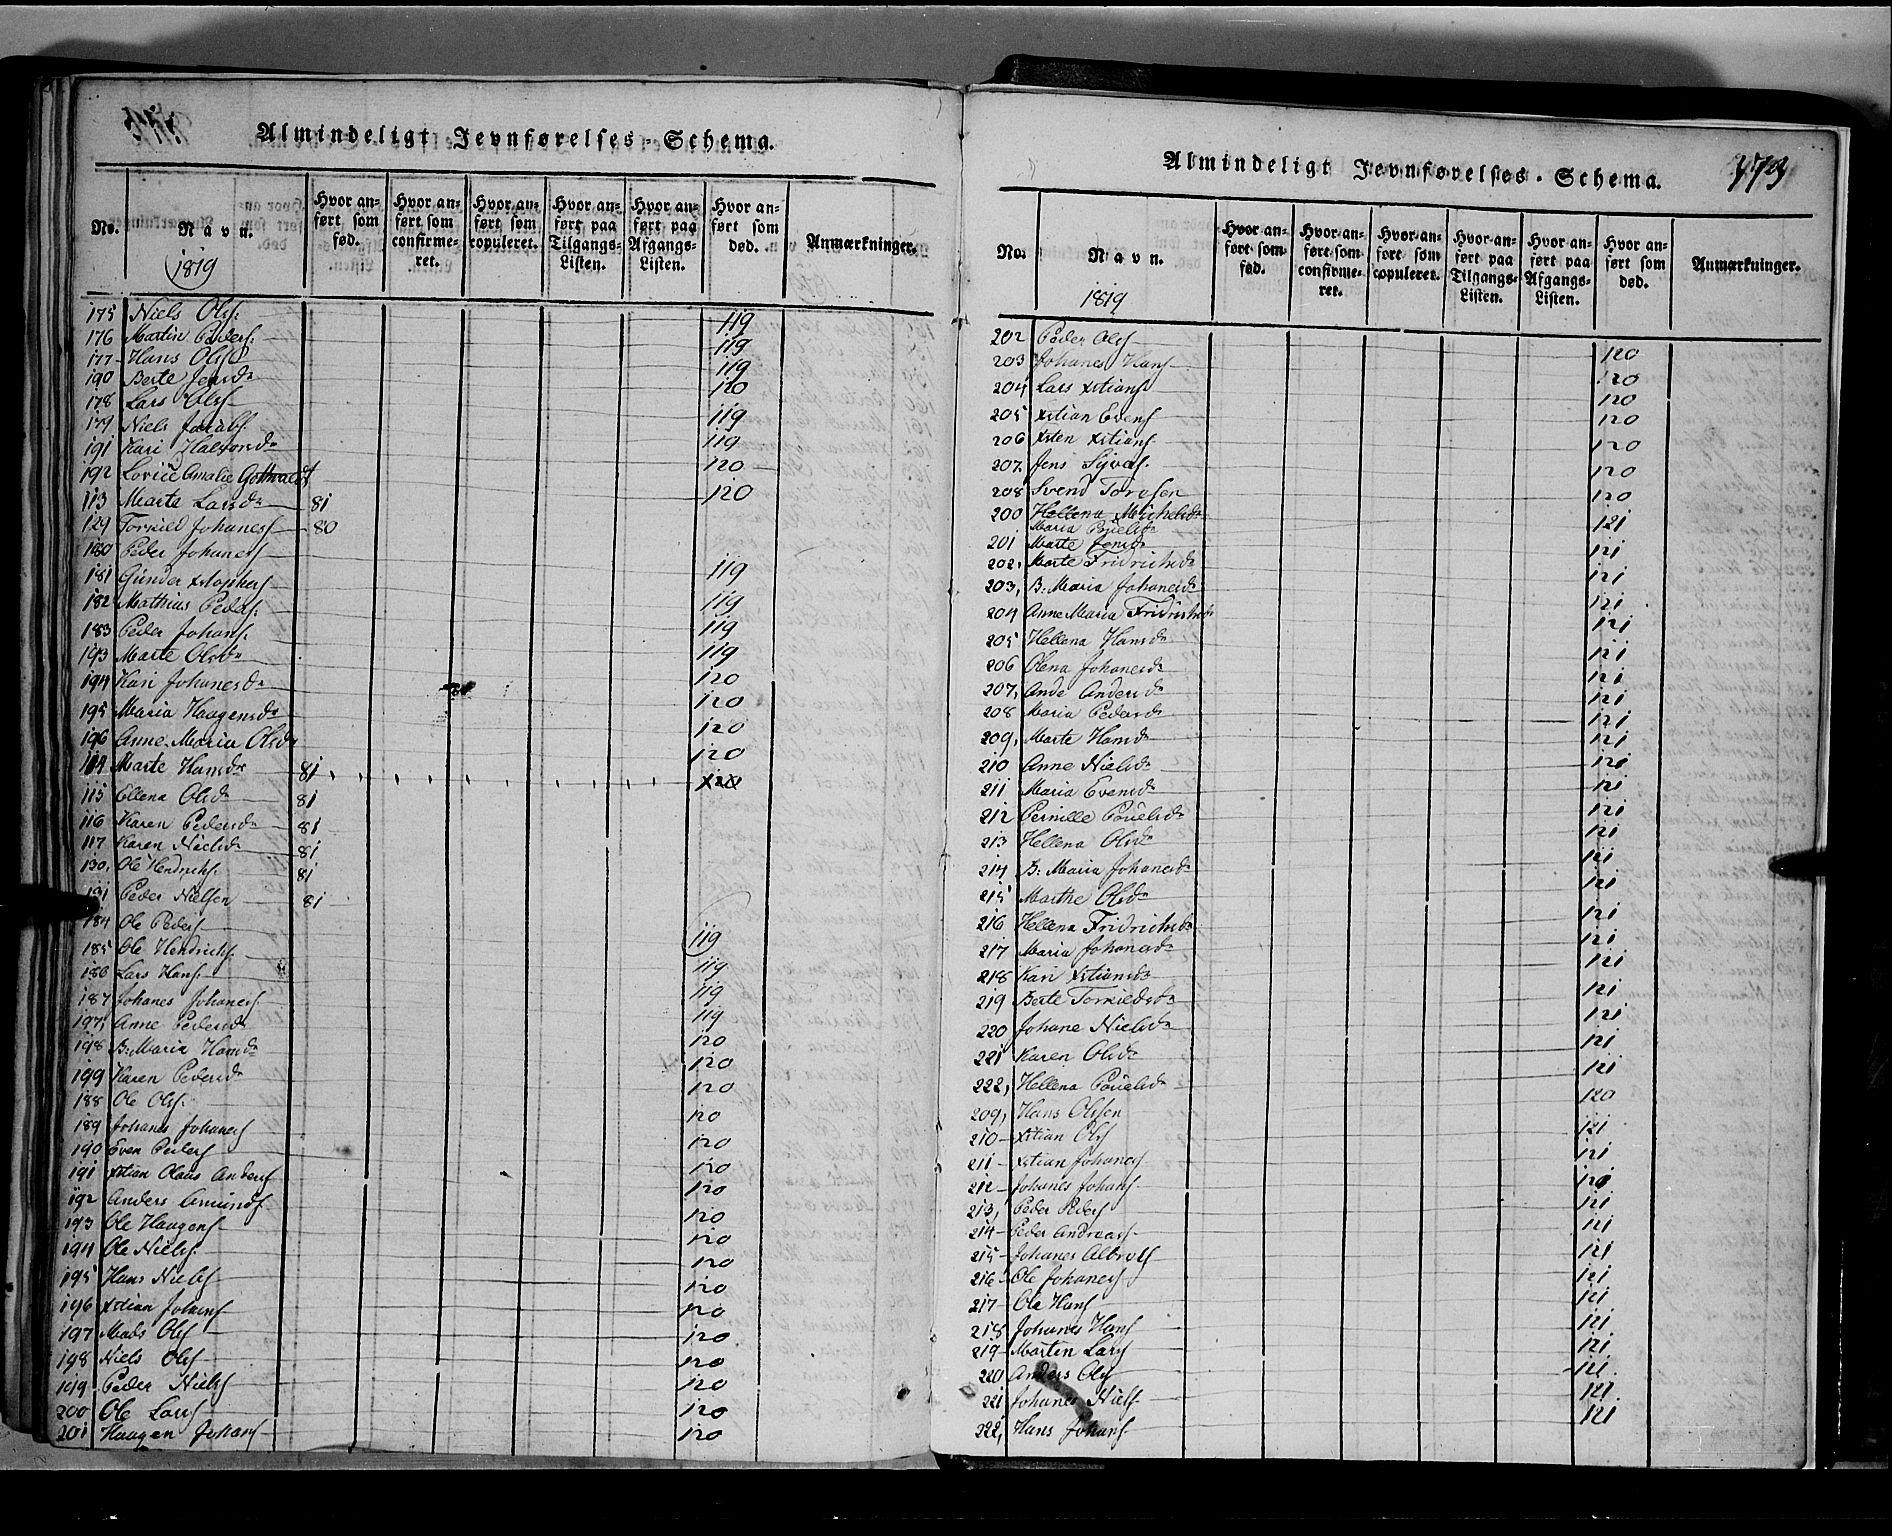 Almindeligt Jevnførelses-Schema.
No.
Navn.
Hvor an-
ført som
fød.
Hvor an-
ført som
confirme-
ret.
Hvor an-
ført som
copuleret.
Hvor an-
ført paa
Tilgangs-
Listen.
Hvor an-
ført paa
Afgangs-
Listen.
Hvor an-
ført som
død.
Anmærkninger.
1819
175 Niels Ols. 119
176 Martin Peders. 119
177 Hans Ols 119
190 Berte Jensd 120
178 Lars Ols 119
179 Niels Jacobs. 119
191 Kari Halvorsd 120
192 Lovice Amalie Gottwaldt 120
113 Marte Larsd 81
129 Torkild Johanes 80
180 Peder Johanes 119
181 Gunder Xstophers 119
182 Mathius Peders. 119
183 Peder Johans. 119
193 Marte Olsd 120
194 Kari Johanesd 120
195 Maria Haagensd 120
196 Anne Maria Olsd 120
114 Marte Hansd 81 120
115 Ellena Olsd 81
116 Karen Pedersd 81
117 Karen Nielsd 81
130. Ole Hendrichs. 81
131 Peder Nielsen 81
184 Ole Peders 119
185 Ole Hendrichs. 119
186 Lars Hans. 119
187 Johanes Johanes. 119
197, Anne Pedersd 120
198 B: Maria Hansd 120
199 Karen Pedersd 120
188 Ole Ols. 120
189 Johanes Johanes 120
190 Even Peders 120
191 Xstian Claus Anders 120
192 Anders Amunds. 120
193 Ole Haagens 120
194 Ole Niels. 120
195 Hans Niels 120
196 Xstian Johans 120
197 Mads Ols 120
198 Niels Ols 120
199 Peder Niels 120
200 Ole Lars 120
201 Haagen Johans 120
Almindeligt Jevnførelses-Schema.
No.
Navn.
Hvor an-
ført som
fød.
Hvor an-
ført som
confirme-
ret.
Hvor an-
ført som
copuleret.
Hvor an-
ført paa
Tilgangs-
Listen.
Hvor an-
ført paa
Afgangs-
Listen.
Hvor an-
ført som
død.
Anmærkninger.
1819
202 Peder Ols 120
203 Johanes Hans 120
204 Lars Xstians 120
205 Xstian Evens 120
206 Xsten Xstians 120
207. Jens Syvers. 120
208 Svend Torgsen 120
200 Hellena Michelsd 121
Maria Pouelsd
201 Marte Jensd 121
202, Marte Fridrichsd 121
203, B: Maria Johanesd 121
204 Anne Maria Fridrichsd 121
205 Hellena Hansd 121
206 Olena Johanesd 121
207, Ande Andersd 121
208 Maria Pedersd 121
209, Marte Hansd 121
210 Anne Nielsd 121
211 Maria Evensd 121
212 Pernille Pouelsd 121
213 Hellena Olsd 121
214 B: Maria Johanesd 121
215 Marthe Olsd 121
216 Hellena Fridrichsd 121
217 Maria Johanesd 121
218 Kari Xstiansd 121
219 Berte Torkildsd 121
220 Johane Nielsd 121
221 Karen Olsd 121
222, Hellena Pouelsd 121
209, Hans Olssen 120
210 Xstian Ols 121
211 Xstian Johanes 121
212 Johanes Johans. 120
213, Peder Peders 121
214 Peder Andreass. 121
215 Johanes Albrets 121
216 Ole Johanes 121
217 Ole Hans 121
218 Johanes Hans 121
219 Morten Lars 121
220 Anders Ols 121
221 Johanes Niels. 121
222, Hans Johans 121